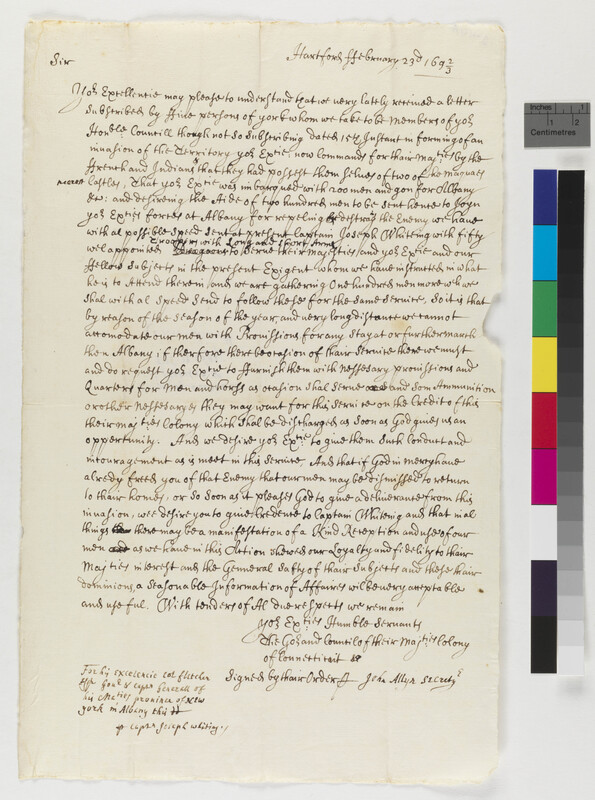 Hartford ffebruary 23d 169 2/3
Sir
Yor Excellencie may please to understand that we very lately received a letter
Subscribed by ffive persons of york whom we take to be Members of yor
Honble Councill though not So Subscribing dated 15th Instant informing of an
invasion of the Territory yor Exclie now commands for thair Maties by the
ffrench and Indians that they had possest them selves of two of the maquaes
Castles, That yor Exclie was imbarqued with 200 men and gon for Albany
&c: and desireing the Aide of two hundred men to be sent hence to Joyn
yor Excties forces at Albany for repeling & destroy the Enemy we have
with al possible speed sent at present Captain Joseph Whiteing with fifty
Troopers with Long and Short Arms
wel appointed to Serve their Majesties and yor Exlie and our
ffellow Subjects in the present Exigent whom we have instructed in what
he is to Attend therein, and we are gathering One hundred men more wh we
shal with al Speed Send to follow these for the same Service, So it is that
by reason of the season of the year, and very long distance we cannot
accomodate our men with Provissions for any stay at or further march
then Albany if therfore there be ocasion of thair Service there we must
and do request yor Exlie to ffurnish them with nessesary provissions and
Quarters for men and horsses as ocasion shal Serve and som Ammunition
or other nessesaryes they may want for this Service on the Credit of this
their maties Colony which shal be discharged as soon as God gives us an
oppertunity. And we desire yor Extie to give them Such Conduct and
incouragement as is meet in this Service, And that if God in mercy have
alredy freed you of that Enemy that our men may be dismissed to return
to thair homes, or so soon as it pleases God to give a deliverance from this
invasion, wee desire you to give Credence to Captain Whiteing and that in al
things there may be a manifestation of a Kind Reception and use of our
men as we have in this Action shewed our Loyalty and fidelity to thair
Majties interest and the Genneral Safty of thair Subjects and these thair
dominions, a seasonable Information of Affaires wil be very acceptable
and useful. With tenders of Al due respects we remain
yor Excties Humble Servants
The Gor and Councill of their Majties Colony
of Connecticut
Signed by thair Order John Allyn Secrety
For his excelencie Col fletcher
Govr & Capt Generall of
his Maties province of New
york in Albany this
Captn Joseph whiting
Inches
1
2
Centimetres